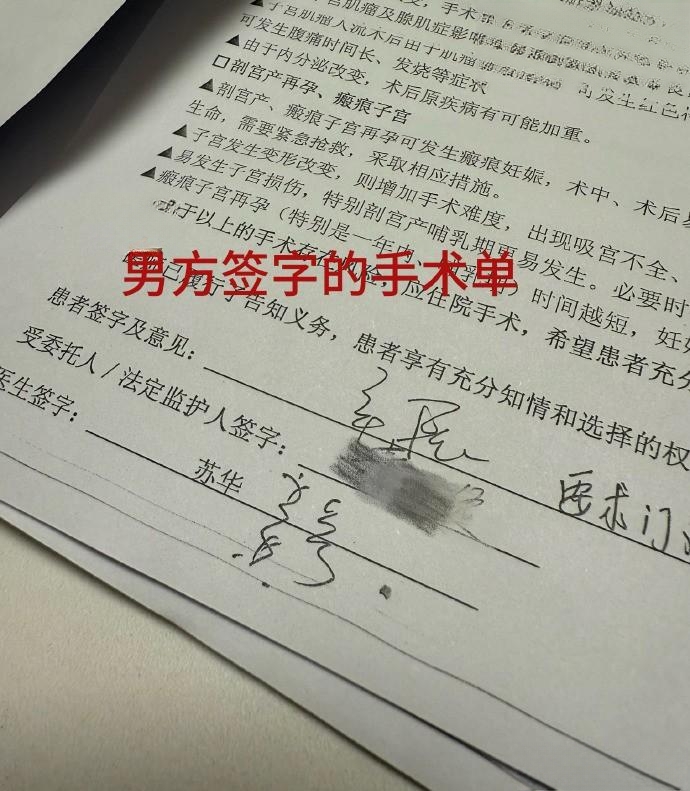 宫肌瘤及腺肌症影
▲子宫肌瘤人流术后由于肌瘤
可发生腹痛时间长、发烧等症状
▲由于内分泌改变，术后原疾病有可能加重。
☐剖宫产再孕、瘢痕子宫
▲剖宫产、瘢痕子宫再孕可发生瘢痕妊娠，术中、术后易
生命，需要紧急抢救，采取相应措施。
▲子宫发生变形改变，则增加手术难度，出现吸宫不全、
▲易发生子宫损伤，特别剖宫产哺乳期更易发生。必要时
▲瘢痕子宫再孕（特别是一年内、时间越短，妊娠
于以上的手术存在风险，应住院手术，希望患者充分
男方签字的手术单
已履行了告知义务，患者享有充分知情和选择的权
患者签字及意见：
受委托人/法定监护人签字：
要求门
医生签字：
苏华